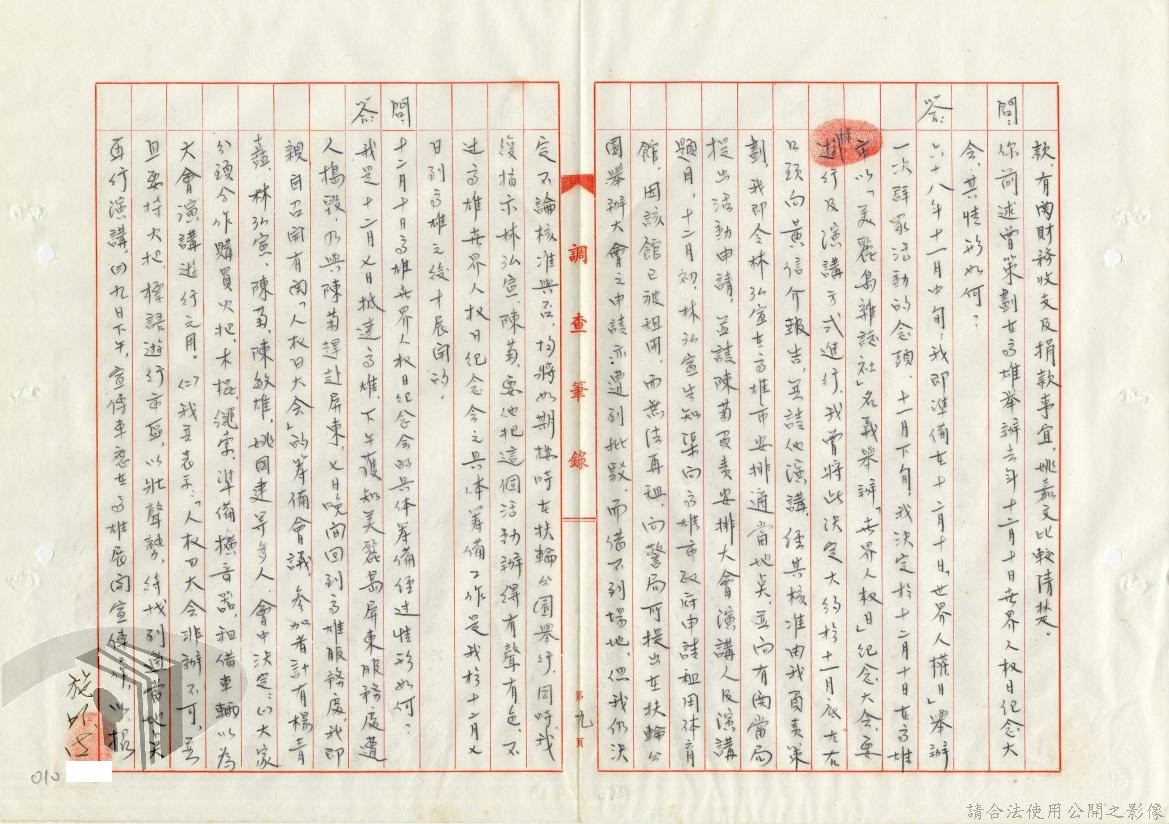 款，有關財務收支及捐款事宜，姚嘉文比較清楚。
問：你前述曾策劃在高雄舉辦去年十二月十日世界人權日紀念大
會，其情形如何？
答：六十八年十一月中旬，我即準備在十二月十日「世界人權日」舉辦
一次群眾活動的念頭，十一月下旬，我決定於十二月十日在高雄
市以「美麗島雜誌社」名義舉辦「世界人權日」紀念大會，要
遊行及演講方式進行，我曾將此決定大約於十一月底左右
口頭向黃信介報告，並請他演講，經其核准由我負責策
劃，我即令林弘宣在高雄市安排適當地點，並向有關當局
提出活動申請，並請陳菊負責安排大會演講人及演講
題目，十二月初，林弘宣告知渠向高雄市政府申請租用體育
館，因該館已被租用，而無法再租，向警局可提出在扶輪公
園舉辦大會之申請亦遭到批駁，而借不到場地，但我仍決
定不論核准與否，均將如期按時在扶輪公園舉行，同時我
復指示林弘宣、陳菊，要他把這個活動辦得有聲有色，不
過高雄世界人權日紀念會之具体籌備工作是我於十二月七
日到高雄之後才展開的。
問：十二月十日高雄世界人權日紀念會的具体籌備經過情形如何？
答：我是十二月七日抵達高雄，下午獲知美麗島屏東服務處遭
人搗毀，乃與陳菊趕赴屏東，七日晚間回到高雄服務處，我即
親自召開有關「人權日大會」的籌備會議，參加者計有楊青
矗、林弘宣、陳菊、陳敏雄、姚國建等多人，會中決定：㈠大家
分頭分作購買火把、木棍、繩索、準備擴音器、租借車輛以為
大會演講遊行之用。㈡我並表示：「人權日大会非辦不可，並
且要持火把、標語遊行市區，以壯聲勢，待找到適當地點
再行演講，㈣九日下午，宣傳車應在高雄展開宣傳
施明德
調查筆錄
第九頁
010
請合法使用公開之影像